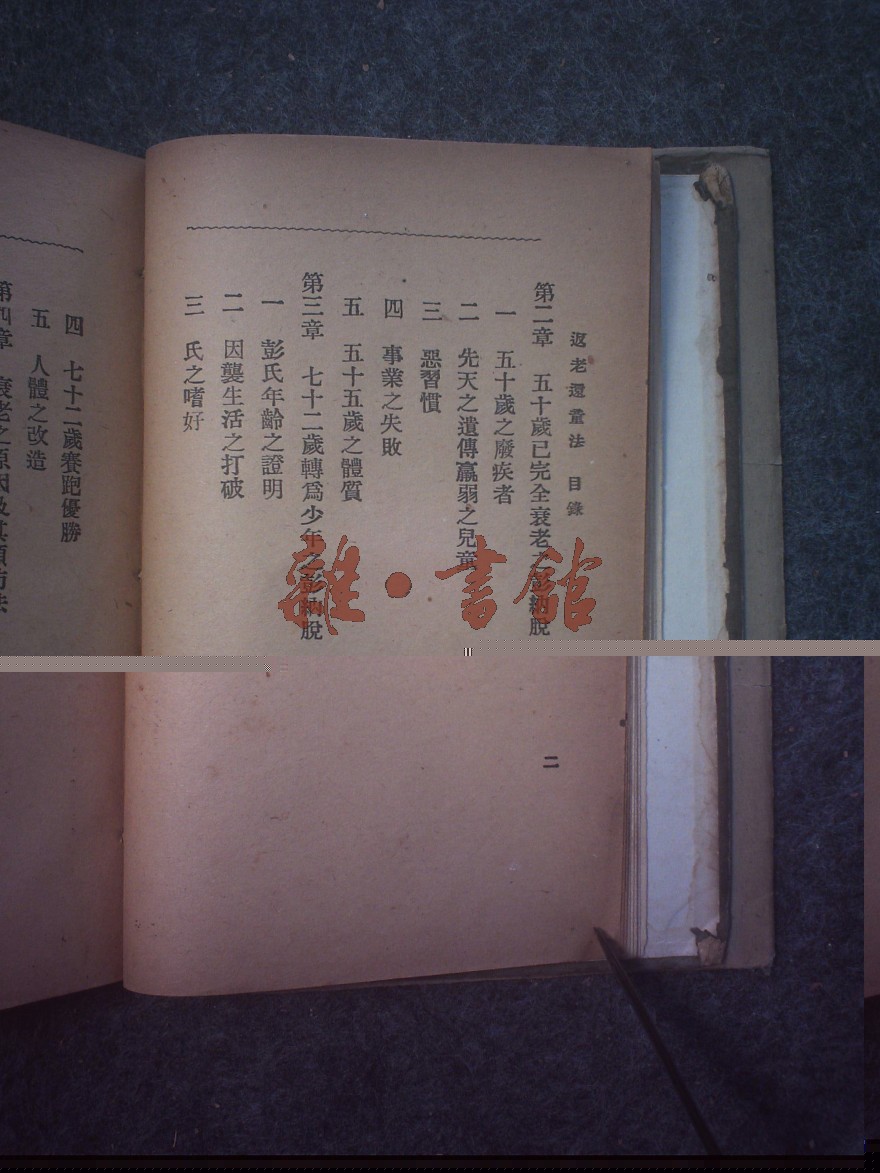 返老還童法 目錄
第二章 五十歲已完全衰老之彭納脫
一 五十歲之廢疾者
二 先天之遺傳羸弱之兒童
三 惡習慣
四 事業之失敗
五 五十五歲之體質
第三章 七十二歲轉爲少年之彭納脫
一 彭氏年齡之證明
二 因襲生活之打破
三 氏之嗜好
二
四 七十二歲賽跑優勝
五 人體之改造
第四章 衰老之原因及其預防法
雜·書館